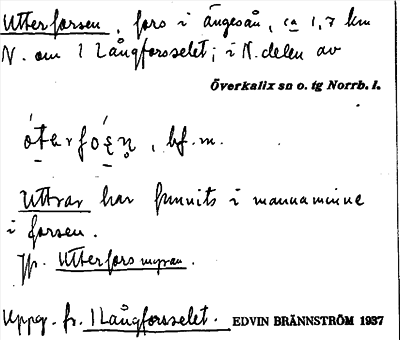 Utterforsen, fors i Ängesån, ca 1,7 km
N. om 1 Långforsselet; i N. delen av
Överkalix sn o. tg Norrb. l.
, bf. m.
Uttrar har funnits i mannaminne
i forsen.
Jfr. Utterforsmyran.
Uppg. fr. 1 Långforsselet. EDVIN BRÄNNSTRÖM 1937